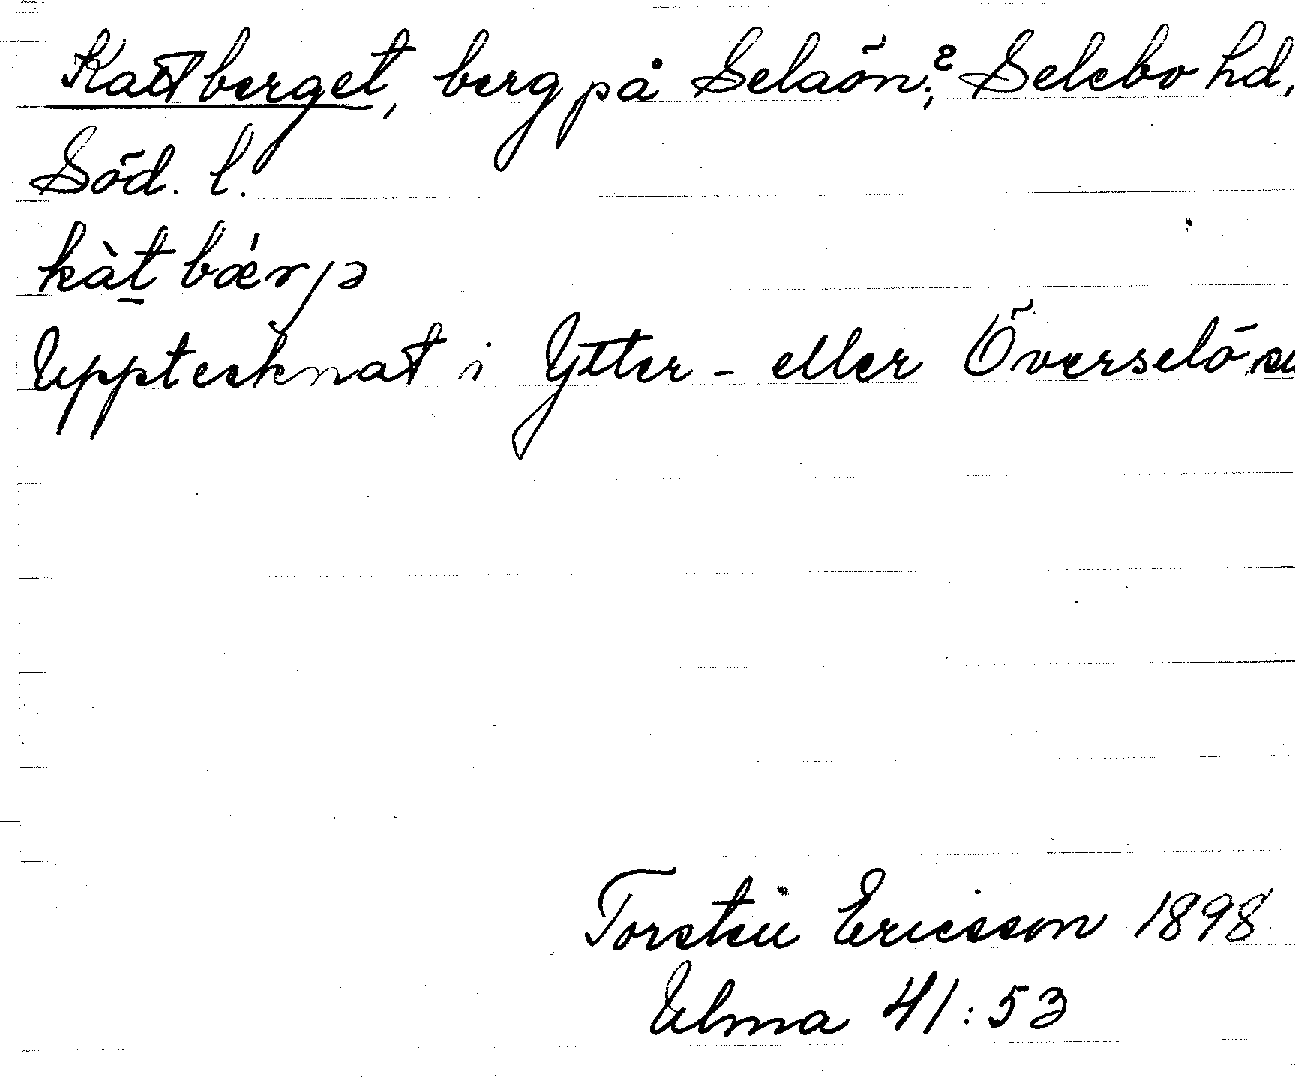 Kattberget, berg på Selaön?; Selebo hd,
Söd. l.
kàt bǽrjə
Upptecknat i Ytter- eller Överselö
Torsten Ericsson 1898
Ulma 41:53